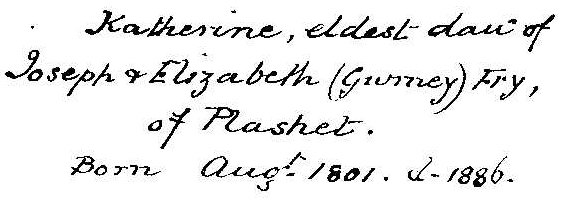 Katherine, eldest dau of
Joseph & Elizabeth (Gurney) Fry,
of Plashet.
Born Augt 1801. d. 1886.